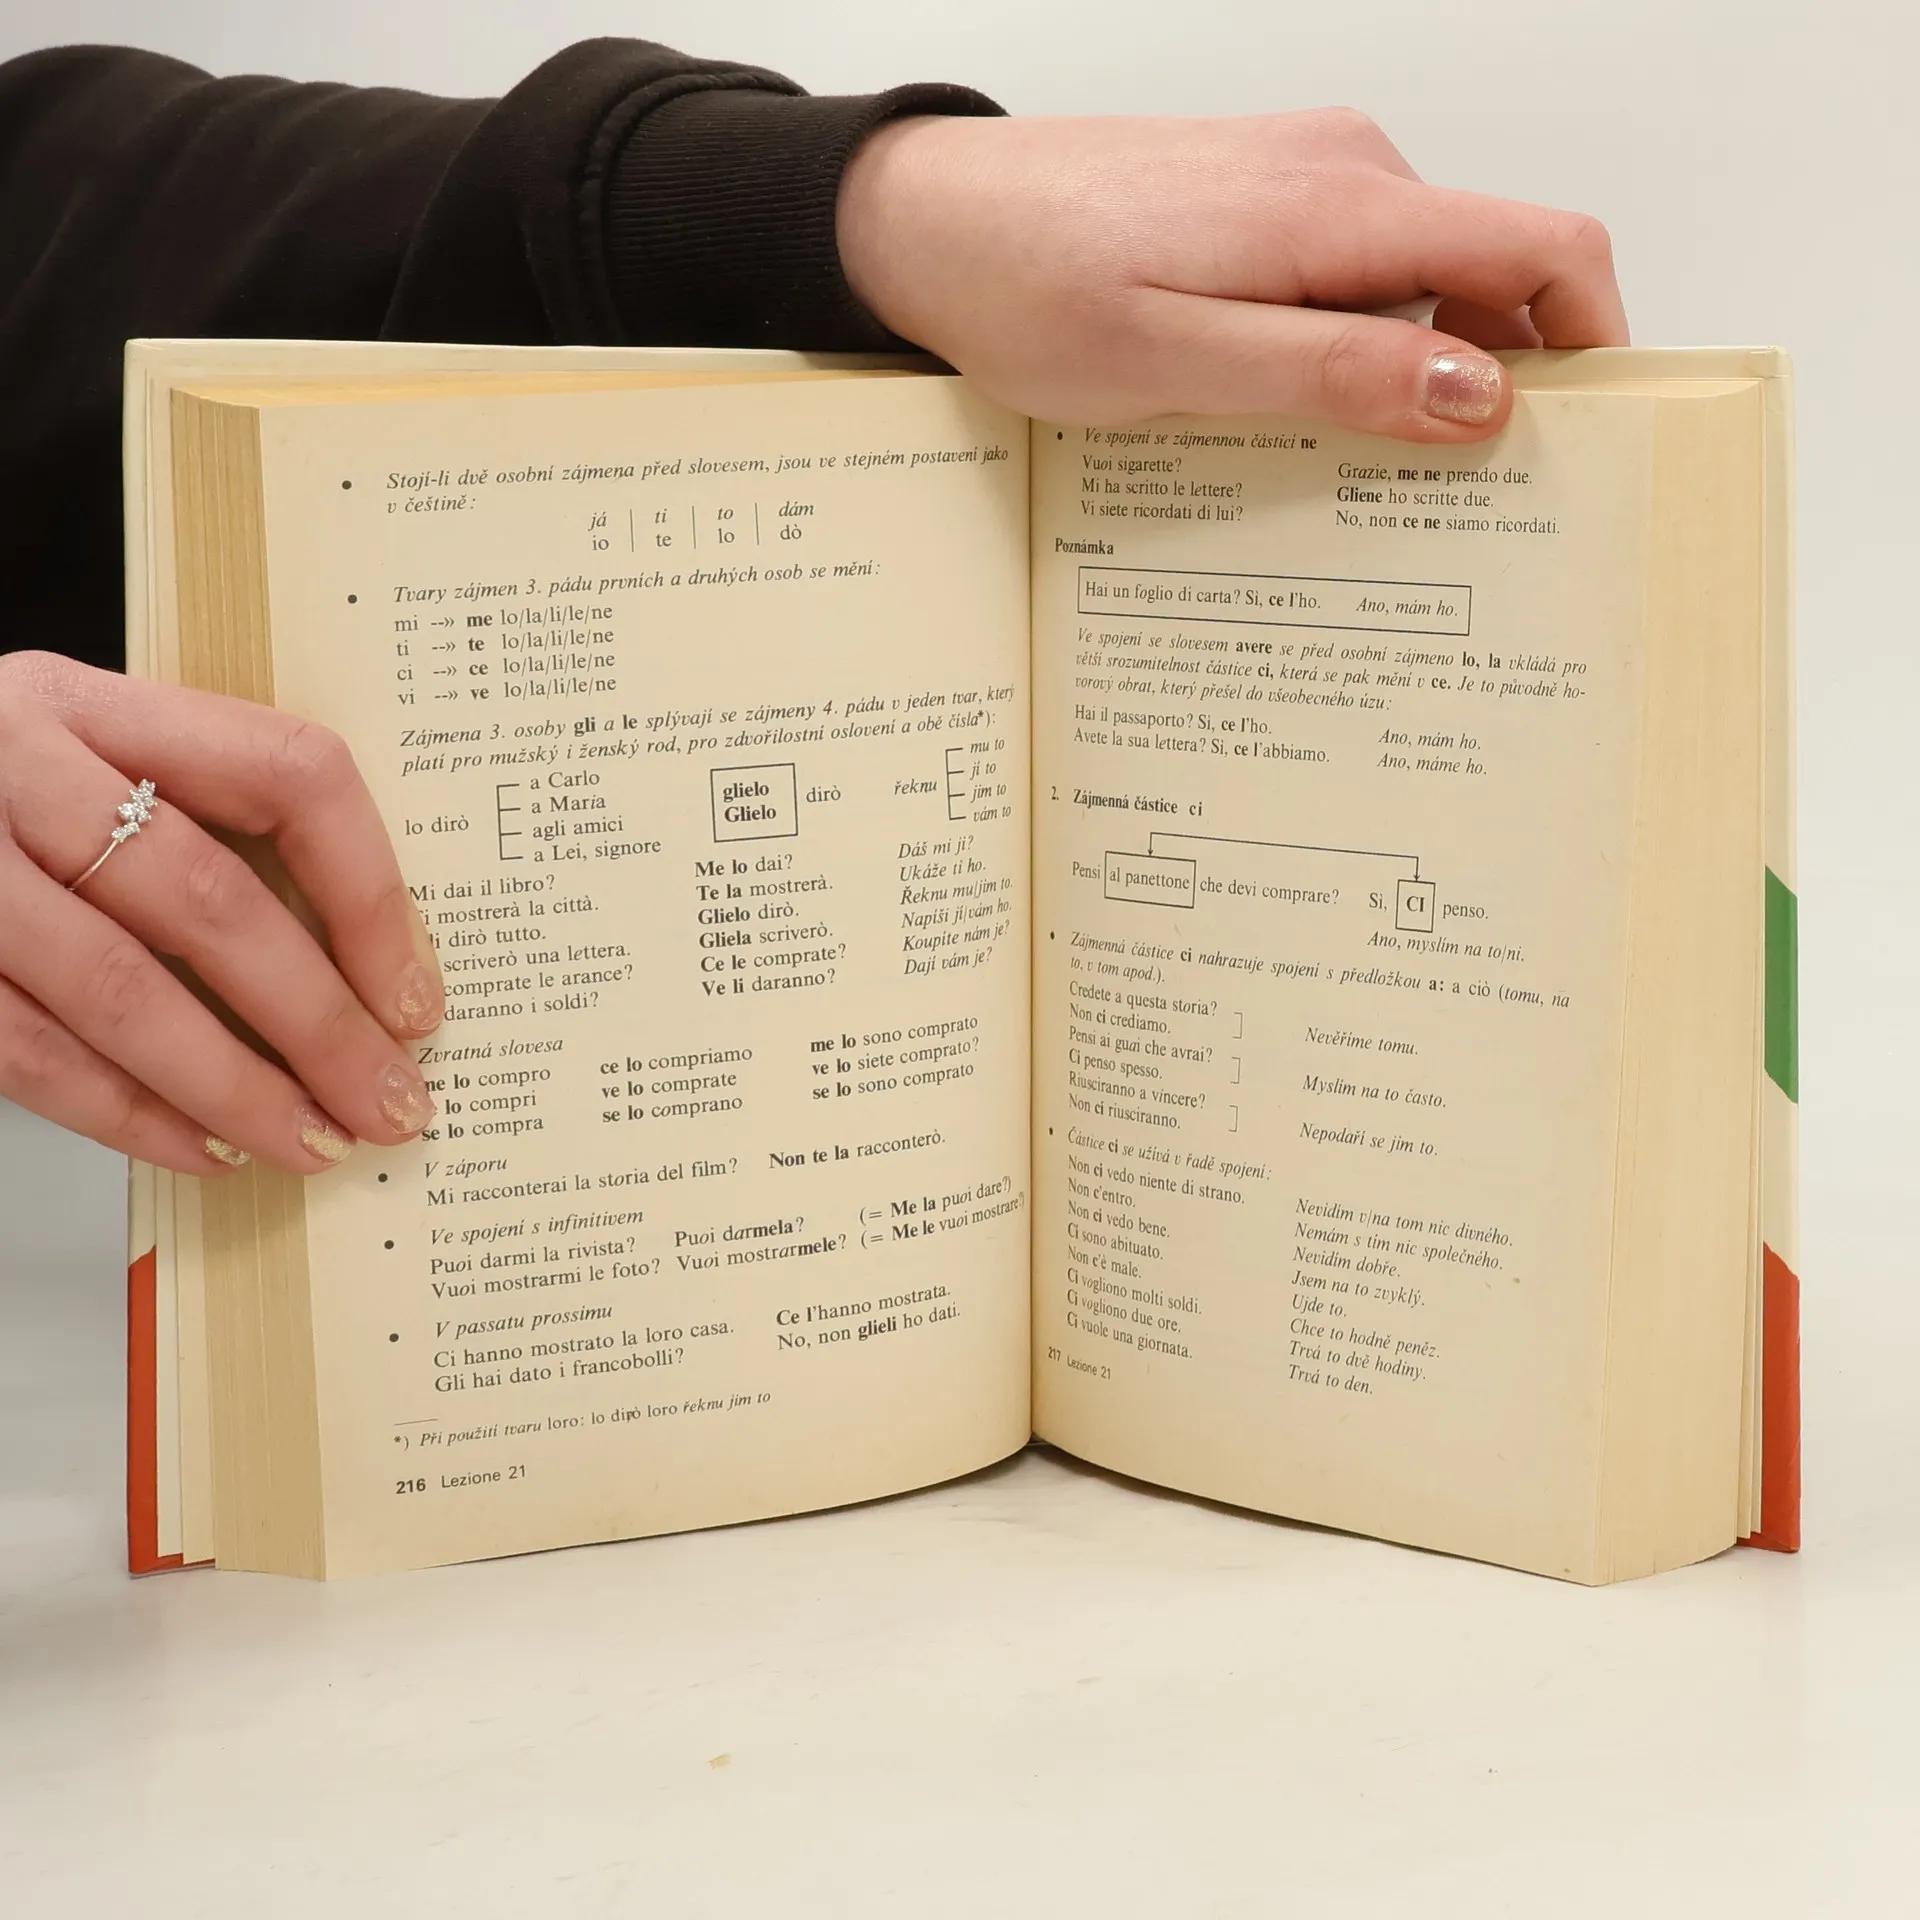 Stojí-li dvě osobní zájmena před slovesem, jsou ve stejném postavení jako
v češtině:
já | ti | to | dám
io | te | lo | dò
Tvary zájmen 3. pádu prvních a druhých osob se mění:
mi --» me lo/la/li/le/ne
ti --» te lo/la/li/le/ne
ci --» ce lo/la/li/le/ne
vi --» ve lo/la/li/le/ne
Zájmena 3. osoby gli a le splývají se zájmeny 4. pádu v jeden tvar, který
platí pro mužský i ženský rod, pro zdvořilostní oslovení a obě čísla*):
lo dirò
a Carlo
a Maria
agli amici
a Lei, signore
glielo
Glielo
dirò
řeknu
mu to
jí to
jim to
vám to
Mi dai il libro? Me lo dai? Dáš mi ji?
mostrerà la città. Te la mostrerà. Ukáže ti ho.
dirò tutto. Glielo dirò. Řeknu mu/jim to.
scriverò una lettera. Gliela scriverò. Napíši jí/vám ho.
comprate le arance? Ce le comprate? Koupíte nám je?
daranno i soldi? Ve li daranno? Dají vám je?
Zvratná slovesa
me lo compro ce lo compriamo me lo sono comprato
lo compri ve lo comprate ve lo siete comprato?
se lo compra se lo comprano se lo sono comprato
V záporu
Mi racconterai la storia del film? Non te la racconterò.
Ve spojení s infinitivem
Puoi darmi la rivista? Puoi darmela? (= Me la puoi dare?)
Vuoi mostrarmi le foto? Vuoi mostrarmele? (= Me le vuoi mostrare?)
V passatu prossimu
Ci hanno mostrato la loro casa. Ce l'hanno mostrata.
Gli hai dato i francobolli? No, non glieli ho dati.
*) Při použití tvaru loro: lo dirò loro řeknu jim to
216 Lezione 21
Ve spojení se zájmennou částicí ne
Vuoi sigarette? Grazie, me ne prendo due.
Mi ha scritto le lettere? Gliene ho scritte due.
Vi siete ricordati di lui? No, non ce ne siamo ricordati.
Poznámka
Hai un foglio di carta? Sì, ce l'ho. Ano, mám ho.
Ve spojení se slovesem avere se před osobní zájmeno lo, la vkládá pro
větší srozumitelnost částice ci, která se pak mění v ce. Je to původně ho-
vorový obrat, který přešel do všeobecného úzu:
Hai il passaporto? Sì, ce l'ho. Ano, mám ho.
Avete la sua lettera? Sì, ce l'abbiamo. Ano, máme ho.
2. Zájmenná částice ci
Pensi al panettone che devi comprare? Sì, CI penso.
Ano, myslím na to/ni.
Zájmenná částice ci nahrazuje spojení s předložkou a: a ciò (tomu, na
to, v tom apod.).
Credete a questa storia?
Non ci crediamo. Nevěříme tomu.
Pensi ai guai che avrai?
Ci penso spesso. Myslím na to často.
Riusciranno a vincere?
Non ci riusciranno. Nepodaří se jim to.
Částice ci se užívá v řadě spojení:
Non ci vedo niente di strano. Nevidím v/na tom nic divného.
Non c'entro. Nemám s tím nic společného.
Non ci vedo bene. Nevidím dobře.
Ci sono abituato. Jsem na to zvyklý.
Non c'è male. Ujde to.
Ci vogliono molti soldi. Chce to hodně peněz.
Ci vogliono due ore. Trvá to dvě hodiny.
Ci vuole una giornata. Trvá to den.
217 Lezione 21